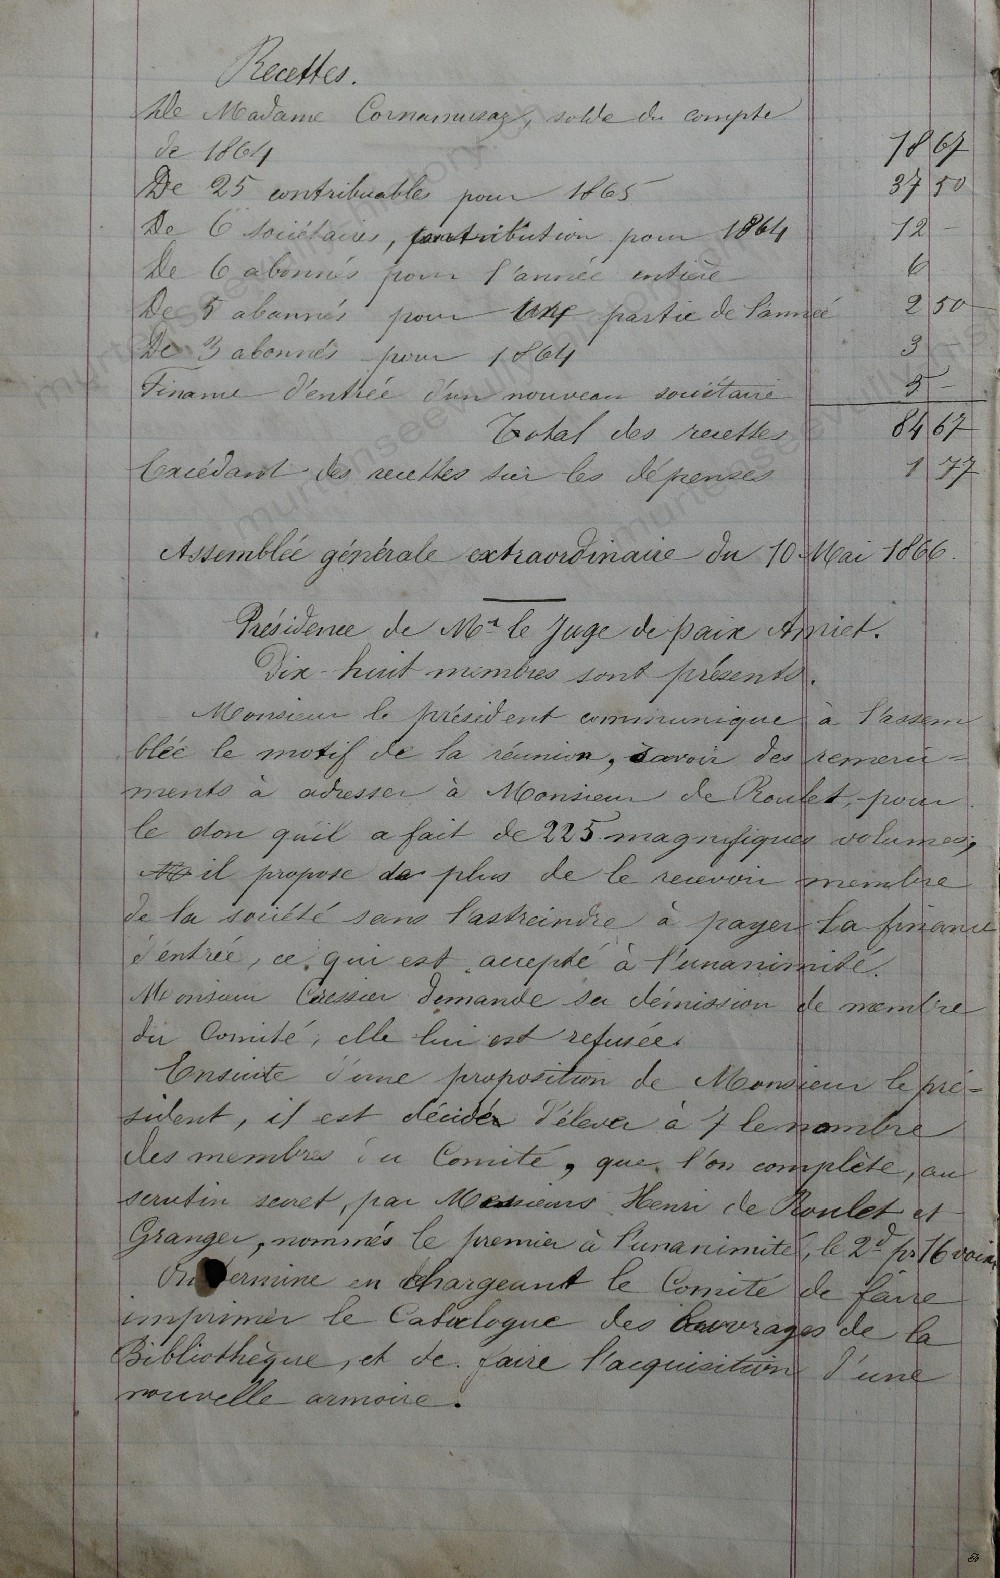 Recettes.
De Madame Cornamusaz, solde du compte
de 1864 18 67
De 25 contribuables pour 1865 37 50
De 6 sociétaires, contribution pour 1864 12 -
De 6 abonnés pour l'année entière 6
De 5 abannés pour une partie de l'année 2 50
De 3 abonnés pour 1864 3 -
Finance d'entrée d'un nouveau sociétaire 5 -
Total des recettes 84 67
Excédant des recettes sur les dépenses 1 77
Assemblée générale extraordinaire du 10 Mai 1866.
Présidence de Mr le Juge de paix Amiet.
Dix-huit membres sont présents.
Monsieur le président communique à l'assem
blée le motif de la réunion, savoir des remerci=
ments à adresser à Monsieur de Roulet, pour
le don qu'il a fait de 225 magnifiques volumes,
il propose de plus de le recevoir membre
de la société sans l'astreindre à payer la finance
d'entrée, ce qui est accepté à l'unanimité.
Monsieur Cressier demande sa démission de membre
du Comité, elle lui est refusée.
Ensuite d'une proposition de Monsieur le pré=
sident, il est décidé d'élever à 7 le nombre
des membres du Comité, que l'on complète, au
scrutin secret, par Messieurs Henri de Roulet et
Granger, nommés le premier à l'unanimité, le 2d pr 16 voix
On termine en chargeant le Comité de faire
imprimer le Catalogue des ouvrages de la
Bibliothèque, et de faire l'acquisition d'une
nouvelle armoire.